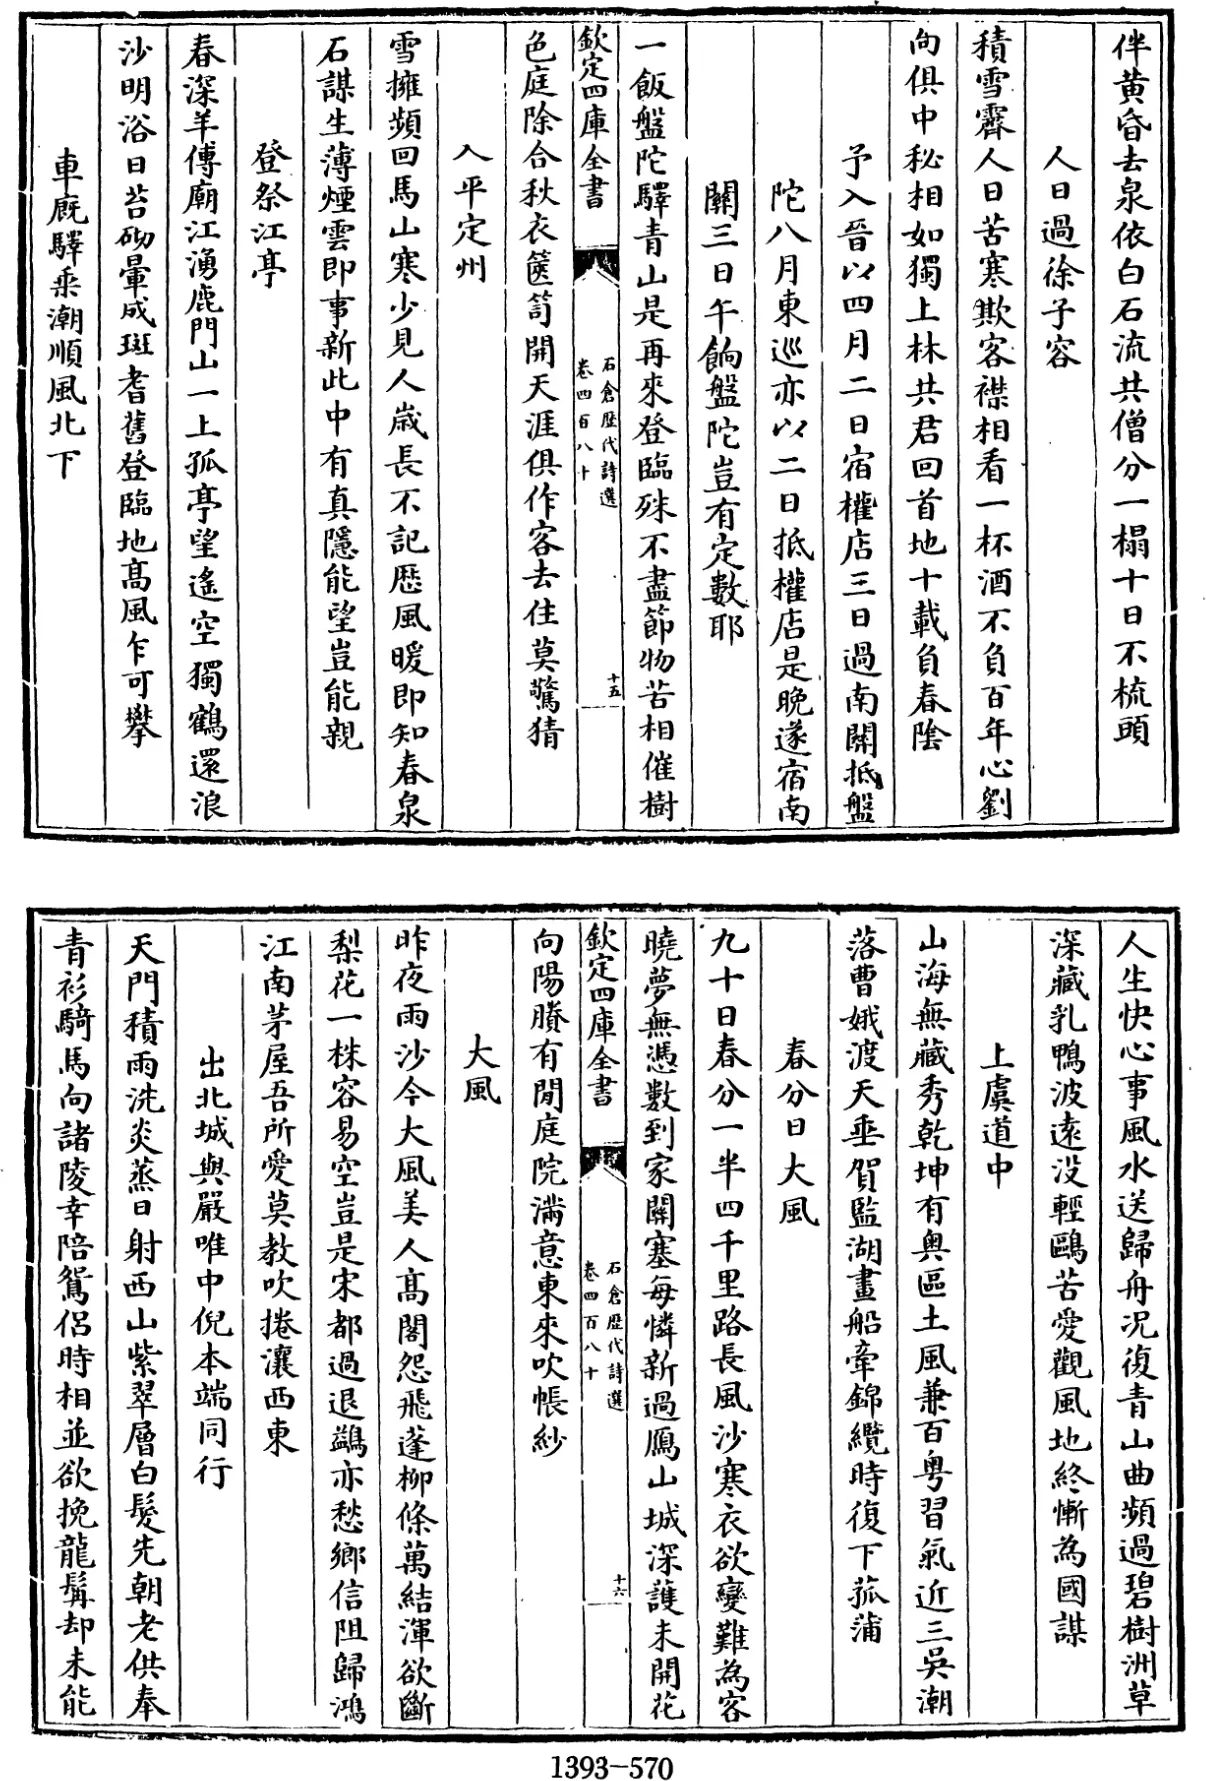 伴黄昏去泉依白石流共僧分一榻十日不梳頭
人日過徐子容
積雪霽人日苦寒欺客襟相看一杯酒不負百年心劉
向俱中秘相如獨上林共君回首地十載負春陰
予入晉以四月二日宿權店三日過南關抵盤
陀八月東巡亦以二日抵權店是晚遂宿南
關三日午餉盤陀豈有定數耶
一飯盤陀驛青山是再來登臨殊不盡節物苦相催樹
欽定四庫全書
石倉歴代詩選
卷四百八十
十五
色庭除合秋衣篋笥開天涯俱作客去住莫驚猜
入平定州
雪擁頻回馬山寒少見人歳長不記歴風暖即知春泉
石謀生薄煙雲即事新此中有真隱能望豈能親
登祭江亭
春深羊傅廟江湧鹿門山一上孤亭望遙空獨鶴還浪
沙明浴日苔砌暈成斑耆舊登臨地髙風乍可攀
車厩驛乗潮順風北下
人生快心事風水送歸舟况復青山曲頻過碧樹洲草
深藏乳鴨波逺没輕鷗苦愛觀風地終慚為國謀
上虞道中
山海無藏秀乾坤有奥區土風兼百粤習氣近三吳潮
落曹娥渡天垂賀監湖畫船牽錦纜時復下菰蒲
春分日大風
九十日春分一半四千里路長風沙寒衣欲變難為客
曉夢無憑數到家關塞每憐新過鴈山城深護未開花
欽定四庫全書
石倉歴代詩選
卷四百八十
十六
向陽賸有閒庭院滿意東來吹帳紗
大風
昨夜雨沙今大風美人髙閣怨飛蓬柳條萬結渾欲斷
梨花一株容易空豈是宋都過退鷁亦愁鄉信阻歸鴻
江南茅屋吾所愛莫教吹捲瀼西東
出北城與嚴唯中倪本端同行
天門積雨洗炎蒸日射西山紫翠層白髮先朝老供奉
青衫騎馬向諸陵幸陪鴛侣時相並欲挽龍髯却未能
1393-570